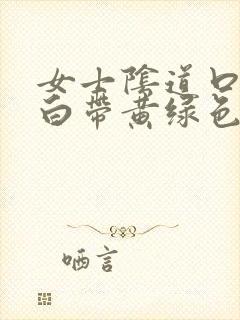 女士陰道口
白帶黄绿色
哂言